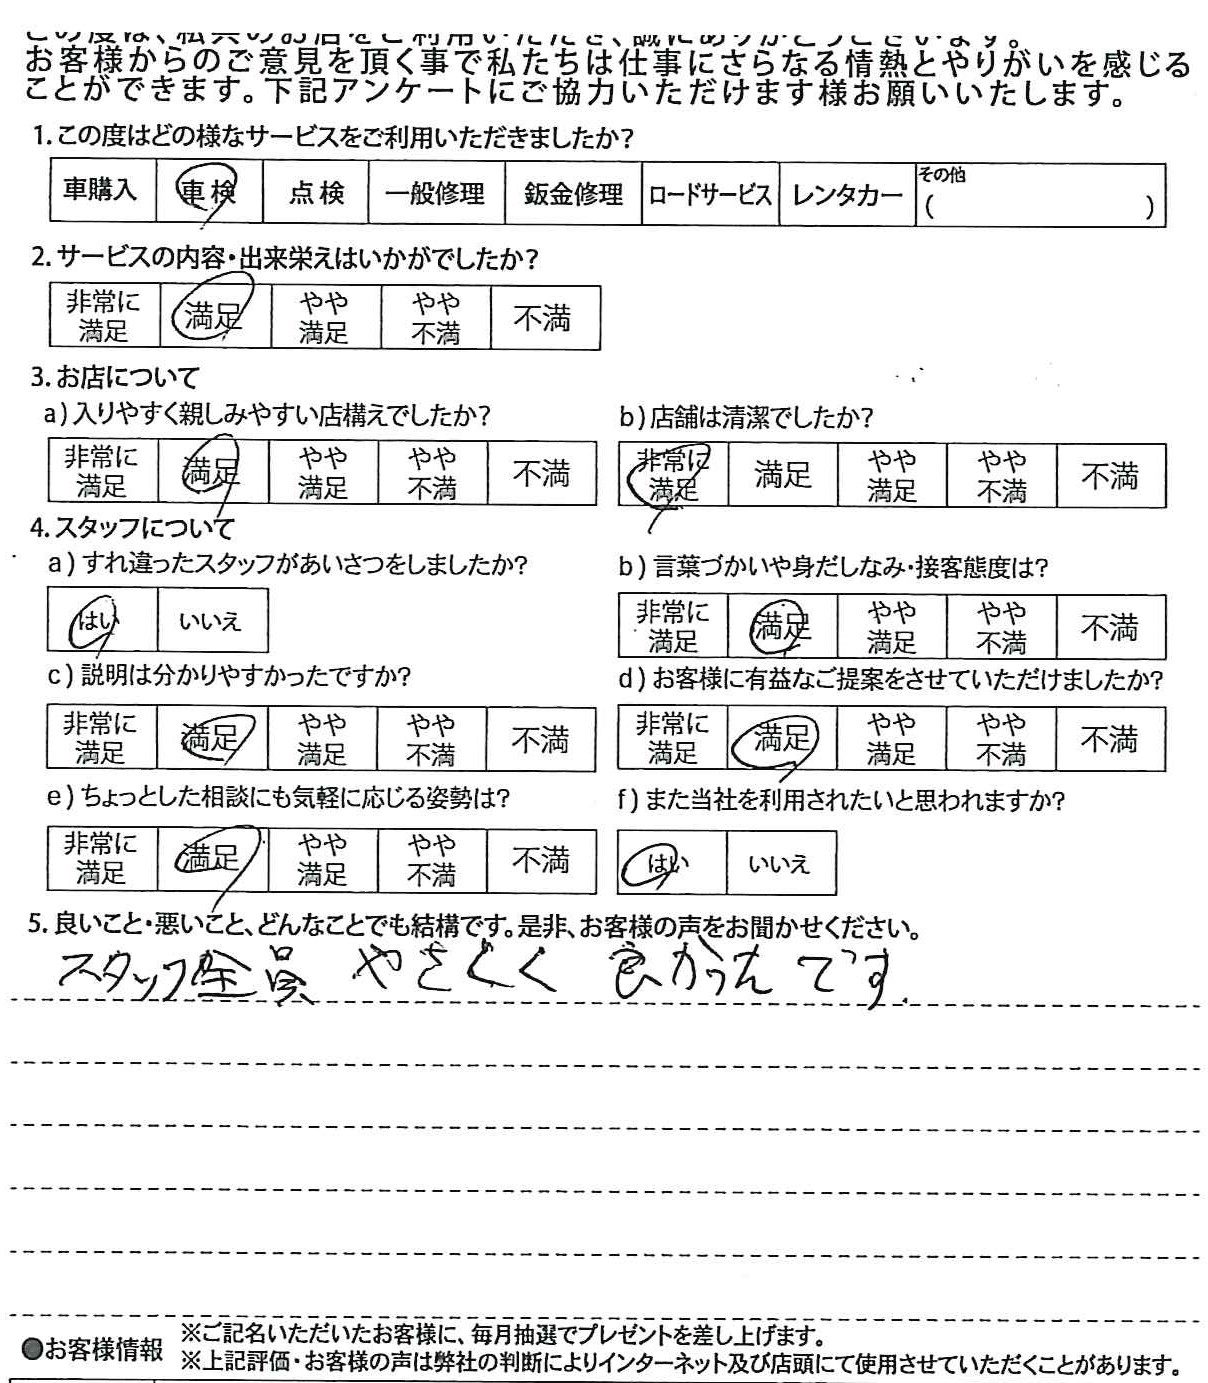 この度は、私共のお店をご利用いただき、誠にありがとうございます。
お客様からのご意見を頂く事で私たちは仕事にさらなる情熱とやりがいを感じる
ことができます。下記アンケートにご協力いただけます様お願いいたします。
1.この度はどの様なサービスをご利用いただきましたか?
車購入 車検 点検 一般修理 鈑金修理 ロードサービス レンタカー その他
( )
2.サービスの内容・出来栄えはいかがでしたか?
非常に満足 満足 やや満足 やや不満 不満
3.お店について
a)入りやすく親しみやすい店構えでしたか? b)店舗は清潔でしたか?
非常に満足 満足 やや満足 やや不満 不満 非常に満足 満足 やや満足 やや不満 不満
4.スタッフについて
a)すれ違ったスタッフがあいさつをしましたか? b)言葉づかいや身だしなみ・接客態度は?
はい いいえ 非常に満足 満足 やや満足 やや不満 不満
c)説明は分かりやすかったですか? d)お客様に有益なご提案をさせていただけましたか?
非常に満足 満足 やや満足 やや不満 不満 非常に満足 満足 やや満足 やや不満 不満
e)ちょっとした相談にも気軽に応じる姿勢は? f)また当社を利用されたいと思われますか?
非常に満足 満足 やや満足 やや不満 不満 はい いいえ
5.良いこと・悪いこと、どんなことでも結構です。是非、お客様の声をお聞かせください。
スタッフ全員 やさしく 良かったです.
●お客様情報 ※ご記名いただいたお客様に、毎月抽選でプレゼントを差し上げます。
※上記評価・お客様の声は弊社の判断によりインターネット及び店頭にて使用させていただくことがあります。